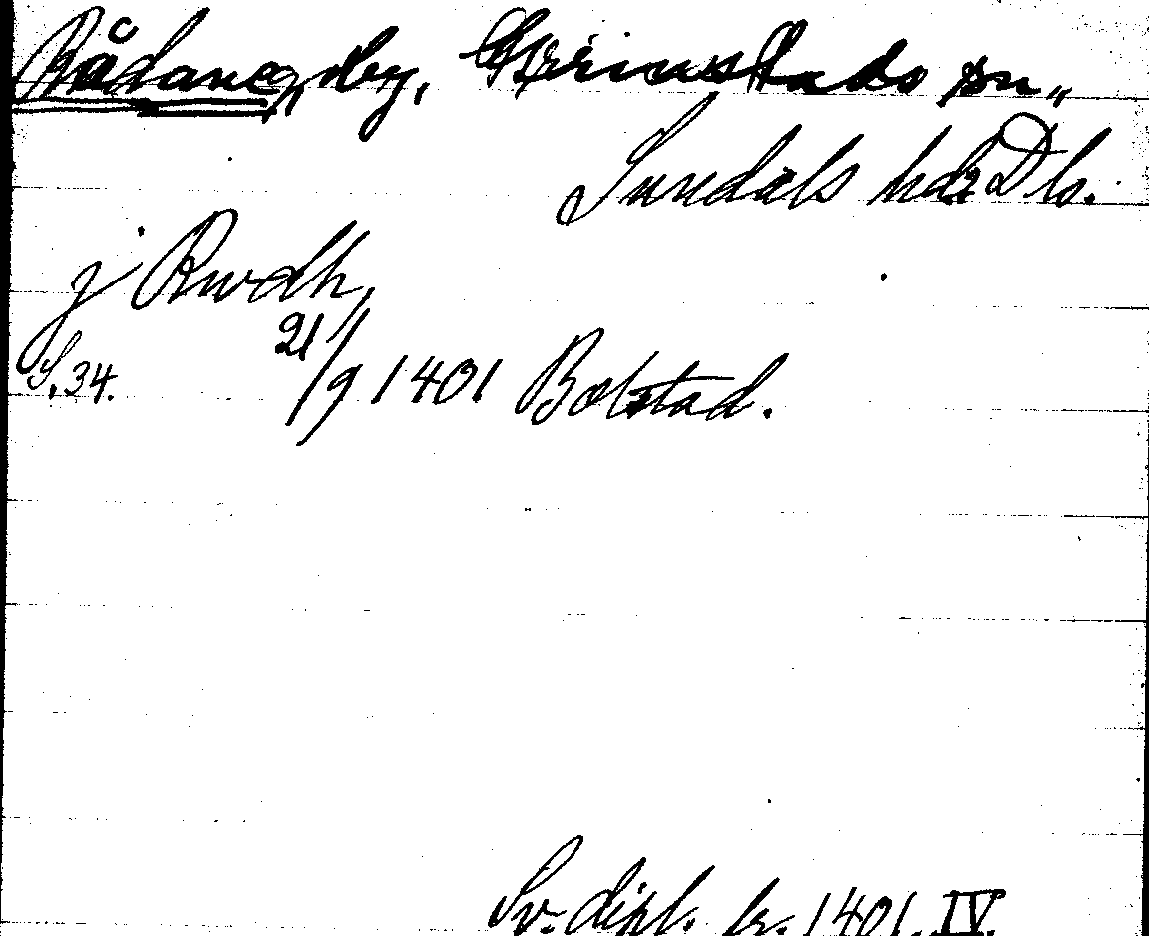 Rådane, by, Grinstads sn,,
Sundals hd, Dls.
j Rwdh,
S. 34. 21/9 1401 Bolstad.
Sv. dipl. fr. 1401. IV.